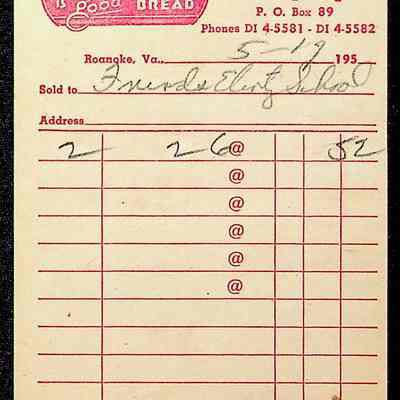 is good BREAD
P. O. Box 89
Phones DI 4-5581 - DI 4-5582
Roanoke, Va., 5-17 195
Sold to Friends Elem School
Address
2 26 @ 52
@
@
@
@
@